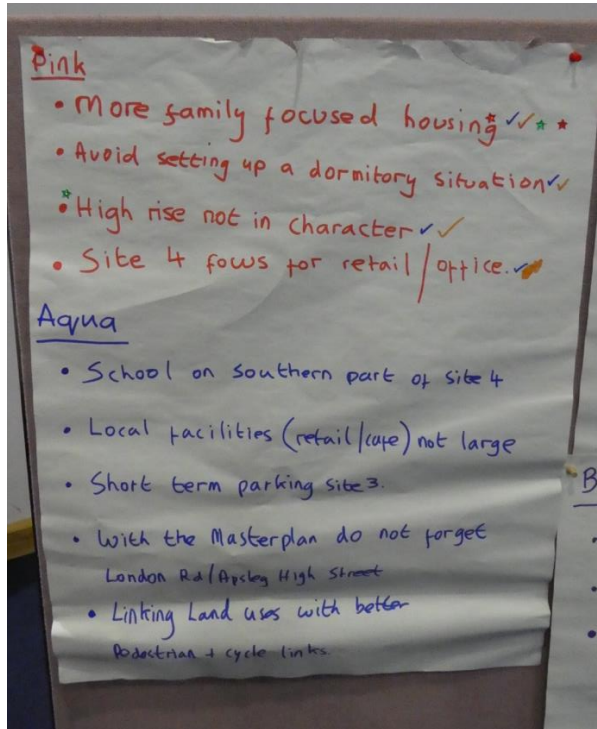 Pink
• More family focused housing
• Avoid setting up a dormitory situation
• High rise not in character
• Site 4 focus for retail/office.
Aqua
• School on southern part of site 4
• Local facilities (retail/cafe) not large
• Short term parking site 3.
• With the Masterplan do not forget
London Rd/Apsley High Street
• Linking Land uses with better
Pedestrian + cycle links.
B